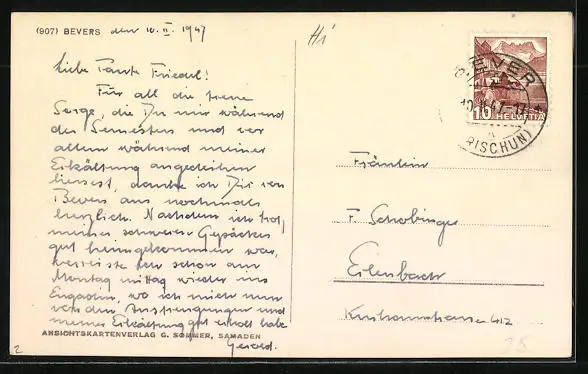 (907) BEVERS den 10. II. 1947
Liebe Tante Friedel!
Für all die treue
Sorge, die Du mir während
des Semesters und vor
allem während meiner
Erkältung angedeihen
liessest, danke ich Dir von
Bevers aus nochmals
herzlich. Nachdem ich trotz
meines schweren Gepäckes
gut heimgekommen war,
verreiste ich schon am
Montag mittag wieder ins
Engadin, wo ich mich nun
von den Anstrengungen und
meiner Erkältung gut erholt habe
ANSICHTSKARTENVERLAG G. SOMMER, SAMADEN
Gerold.
2
Fräulein
F. Schobinger
Erlenbach
HELVETIA
10
BEVER
10.II.47-17
(GRISCHUN)